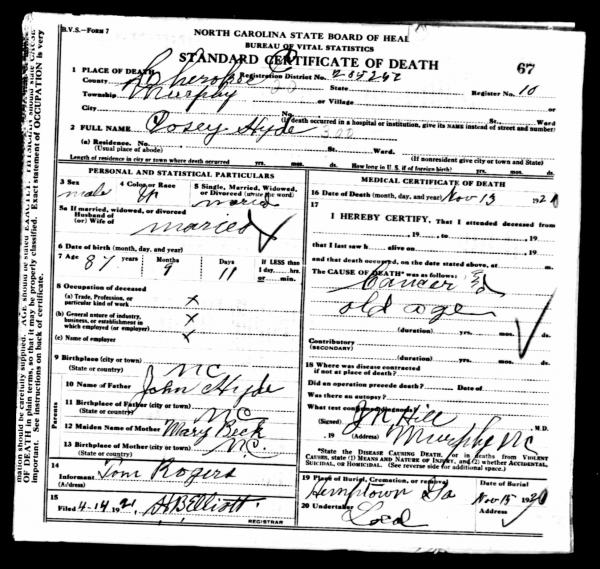 B.V.S.—FORM 7
NORTH CAROLINA STATE BOARD OF HEAL
BUREAU OF VITAL STATISTICS
STANDARD CERTIFICATE OF DEATH
67
1 PLACE OF DEATH
County Cherokee Registration District No. State Register No. 10
Township Murphy or Village
City No. St. Ward
(If death occurred in a hospital or institution, give its NAME instead of street and number)
2 FULL NAME Posey Hyde
(a) Residence. No. St. Ward
(Usual place of abode) (If nonresident give city or town and State)
Length of residence in city or town where death occurred yrs. mos. ds. How long in U. S. if of foreign birth? yrs. mos. ds.
PERSONAL AND STATISTICAL PARTICULARS
3 Sex 4 Color or Race 5 Single, Married, Widowed, or Divorced (write the word)
male W married
5a If married, widowed, or divorced
Husband of
(or) Wife of married
6 Date of birth (month, day, and year)
7 Age 87 years Months 9 Days 11 If LESS than 1 day,....hrs. or....min.
8 Occupation of deceased
(a) Trade, Profession, or particular kind of work x
(b) General nature of industry, business, or establishment in which employed (or employer) x
(c) Name of employer x
9 Birthplace (city or town) NC
(State or country)
Parents
10 Name of Father John Hyde
11 Birthplace of Father (city or town) NC
(State or country)
12 Maiden Name of Mother Mary Beck
13 Birthplace of Mother (city or town) N.C.
(State or country)
14
Informant Tom Rogers
(Address)
15
Filed 4-14 1921 Elliott
REGISTRAR
MEDICAL CERTIFICATE OF DEATH
16 Date of Death (month, day, and year) Nov 13 192
17
I HEREBY CERTIFY, That I attended deceased from
, 19 , to , 19
that I last saw h alive on , 19
and that death occurred, on the date stated above, at m.
The CAUSE OF DEATH* was as follows:
Cancer
old age
(duration) yrs. mos. ds.
Contributory
(SECONDARY)
(duration) yrs. mos. ds.
18 Where was disease contracted
if not at place of death?
Did an operation precede death? Date of
Was there an autopsy?
What test confirmed diagnosis?
(Signed) Hill M.D.
, 19 (Address) Murphy NC
*State the DISEASE CAUSING DEATH, or in deaths from VIOLENT CAUSES, state (1) MEANS AND NATURE OF INJURY, and (2) whether ACCIDENTAL, SUICIDAL, or HOMICIDAL. (See reverse side for additional space.)
19 Place of Burial, Cremation, or removal Date of Burial
Hemptown Ga Nov 15 1920
20 Undertaker Address
Local
mation should be carefully supplied. AGE should be stated EXACTLY. PHYSICIANS should state CAUSE
OF DEATH in plain terms, so that it may be properly classified. Exact statement of OCCUPATION is very
important. See instructions on back of certificate.